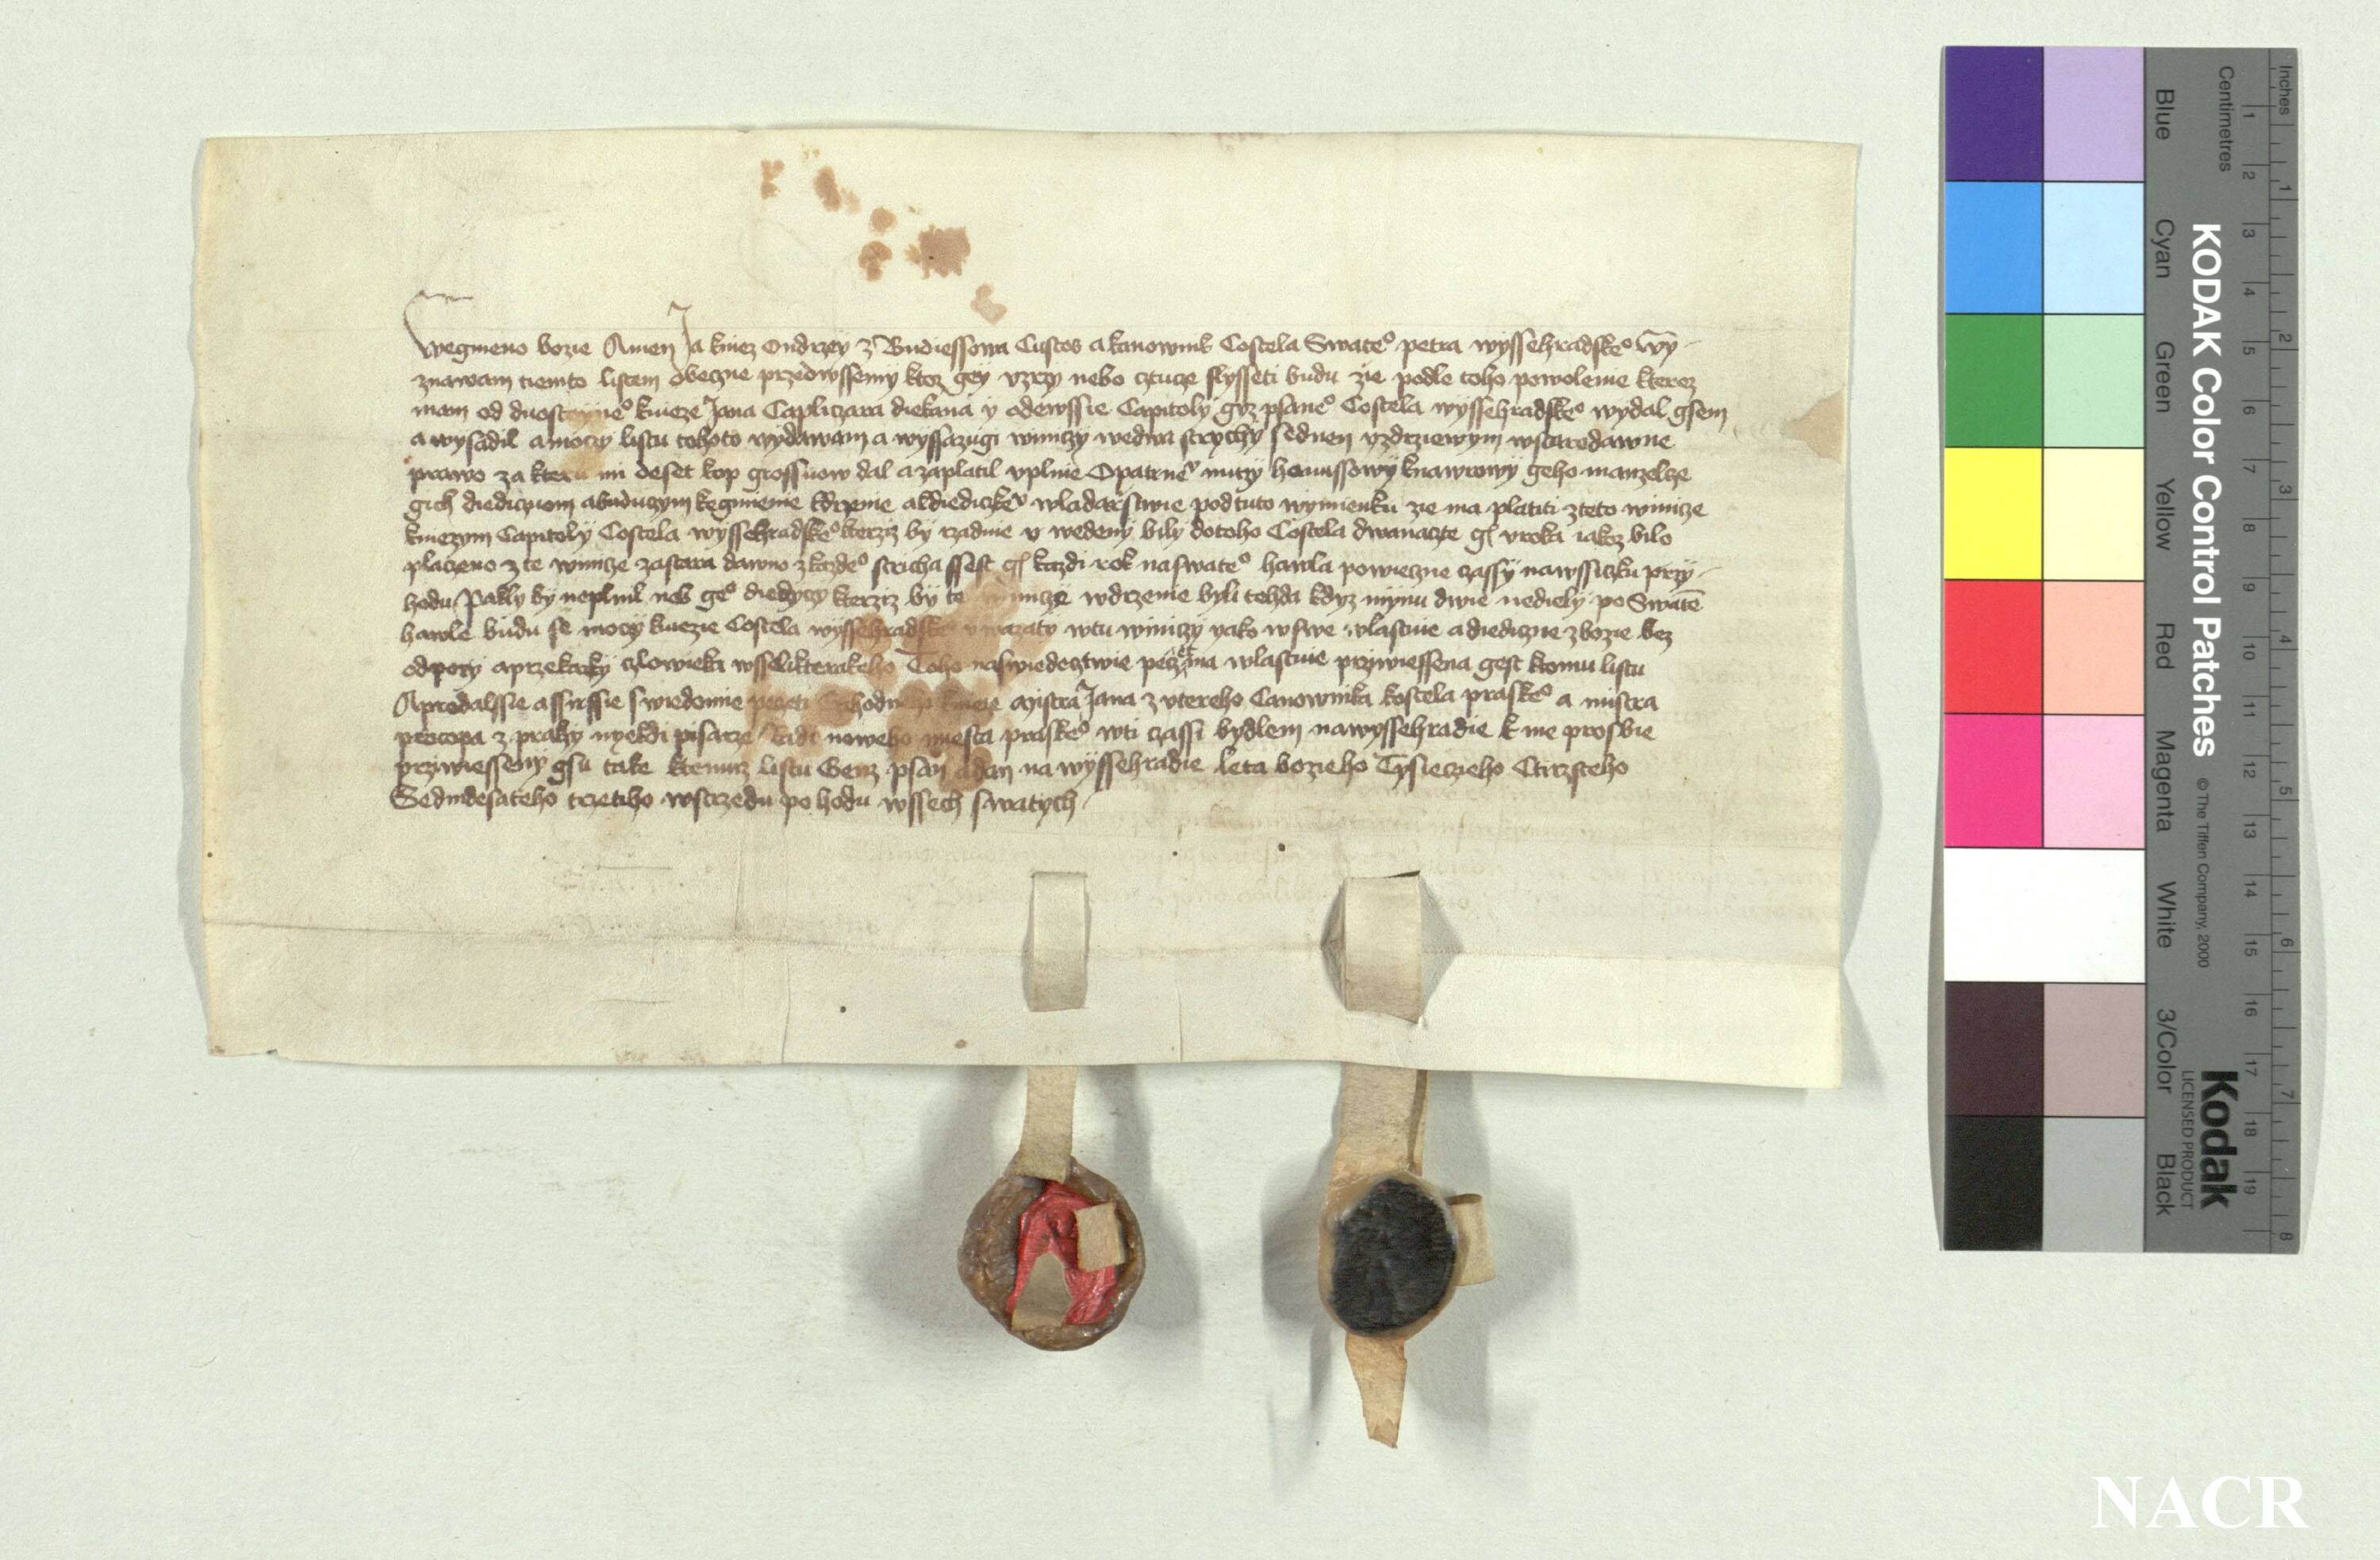 Wegmeno bozie Amen Ja kniez Ondrzey z Budiessowa Custos a kanownik Costela Swateº petra wyssehradskeº wy-
znawam tiemto listem obeczne przedewssemy ktoz gey vzrzy nebo cztucze slysseti budu zie podle toho powolenie kterez
mam od duostoyneº knieze Jana Capliczara diekana y odewssie Capitoly grz psaneº Costela wyssehradskeº wydal gsem
a wysadil a moczy listu tohoto wydawam a wyssazugi winiczy wedwa strychy sednen vzdrziewym wstarodawne
prawo za kteru mi deset kop grossuow dal a zaplatil vplnie Opatrneº muzy hanussowy knawrowy geho manzelcze
gich diediczuom abuduczym kegmieme diediczkeº wladarstwie pod tuto wymienku zie ma platiti zteto winicze
kniezym Capitoly Costela wyssehradskeº kterziz by rzadnie v wedeny bily dotoho Costela dwanaczte gſ vroka iakoz bilo
placzeno z te winicze zastara dawno zkazdeº stricha ssest gſ kazdi rok naswateº hawla powieczne czassy nawssiczku przy-
hodu Pakly by neplnil neb geº diediczy kterziz by te winicze wdrzenie byli tehda kdyz mynu dwie nediely po Swatē
hawle budu se moczy kniezie Costela wyssehradskeº vwazaty wtu winiczy yako wswe wlastnie a diediczne zbozie bez
odpory aprzekazky czlowieka wsselikterakeho Toho naswiedecztwie peczet ma wlastnie przywiessena gest ktomu listu
Aprodalssie assirssie swiedomie peczeti Czthodneho knieze Mistra Jana z vtereho Canownika kostela praskeº a mistra
procopa z prahy nyekdi pisarze Radi noweho miesta praskeº wti czassi bydlem nawyssehradie k me prosbie
przywiesseny gsu take ktemuz listu Genz psan a dan na wyssehradie leta bozieho Tysiecziеho Cztrzsteho
Sedmdesateho trzetiho wstrzedu po hodu wssech swatych
Inches
Centimetres
Blue Cyan Green Yellow Red Magenta White 3/Color Black
KODAK Color Control Patches © The Tiffen Company, 2000
Kodak
LICENSED PRODUCT
1 2 3 4 5 6 7 8 9 10 11 12 13 14 15 16 17 18 19
1 2 3 4 5 6 7 8
NACR